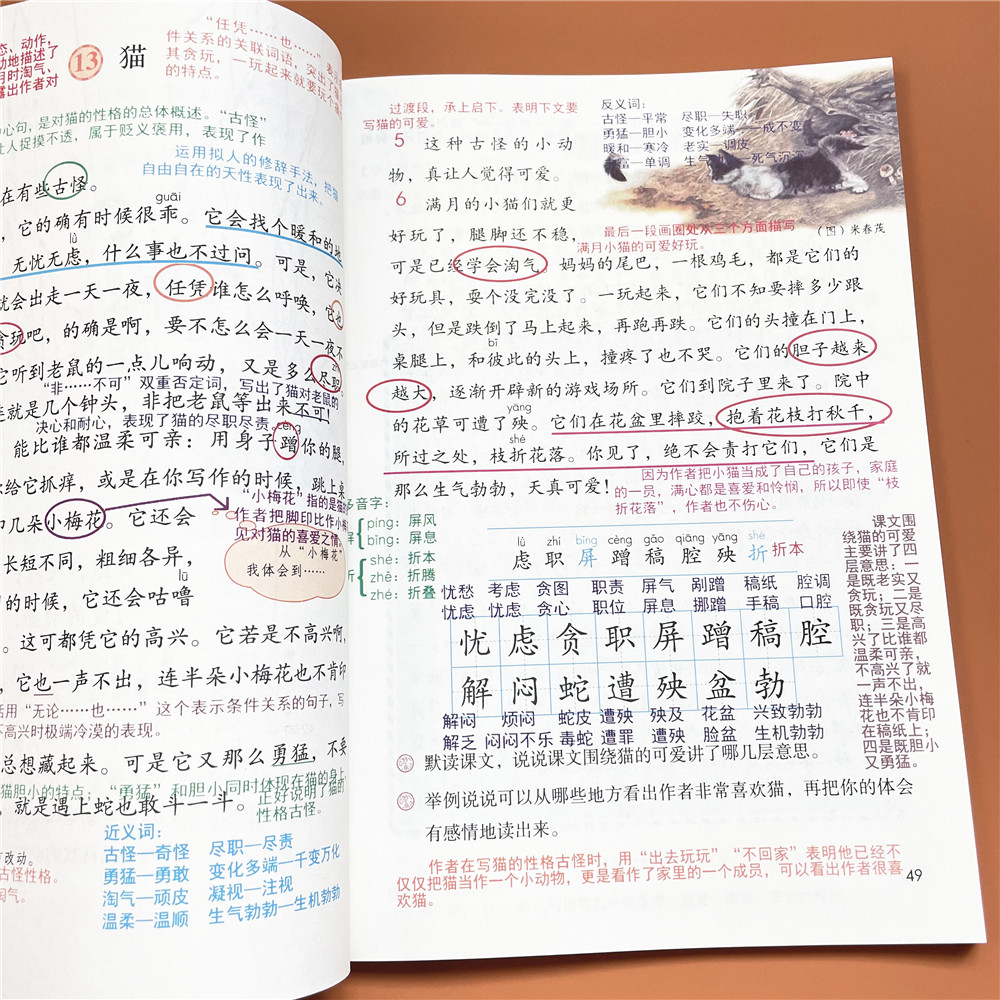 态、动作,
动地描述了
月时淘气、
露出作者对
13 猫
“任凭……也……”
件关系的关联词语,突出了猫
其贪玩,一玩起来就要玩个
的特点。
心句,是对猫的性格的总体概述。“古怪”
让人捉摸不透,属于贬义褒用,表现了作
运用拟人的修辞手法,把猫
自由自在的天性表现了出来。
在有些古怪。
guāi
,它的确有时候很乖。它会找个暖和的地
lǜ
无忧无虑,什么事也不过问。可是,它决
就会出走一天一夜,任凭谁怎么呼唤,它也
贪玩吧,的确是啊,要不怎么会一天一夜不
它听到老鼠的一点儿响动,又是多么尽职。
“非……不可”双重否定词,写出了猫对老鼠的
连就是几个钟头,非把老鼠等出来不可!
决心和耐心,表现了猫的尽职尽责。
cèng
能比谁都温柔可亲:用身子蹭你的腿,
你给它抓痒,或是在你写作的时候,跳上桌
印几朵小梅花。它还会
“小梅花”指的是猫的
作者把脚印比作小梅
见对猫的喜爱之情。
从“小梅花”
我体会到……
长短不同,粗细各异,
lū
的时候,它还会咕噜
。这可都凭它的高兴。它若是不高兴啊,
,它也一声不出,连半朵小梅花也不肯印
活用“无论……也……”这个表示条件关系的句子,写
不高兴时极端冷漠的表现。
总想藏起来。可是它又那么勇猛,不要
猫胆小的特点;“勇猛”和胆小同时体现在猫的身上
,就是遇上蛇也敢斗一斗。
正好说明了猫的
性格古怪。
近义词:
古怪—奇怪 尽职—尽责
勇猛—勇敢 变化多端—千变万化
淘气—顽皮 凝视—注视
温柔—温顺 生气勃勃—生机勃勃
有改动。
古怪性格。
淘气。
过渡段,承上启下。表明下文要
写猫的可爱。
5 这种古怪的小动
物,真让人觉得可爱。
反义词:
古怪—平常 尽职—失职
勇猛—胆小 变化多端—一成不变
暖和—寒冷 老实—调皮
丰富—单调 生气勃勃—死气沉沉
6 满月的小猫们就更
好玩了,腿脚还不稳,
最后一段画圈处从三个方面描写
满月小猫的可爱好玩。
(图)米春茂
可是已经学会淘气。妈妈的尾巴,一根鸡毛,都是它们的
好玩具,耍个没完没了。一玩起来,它们不知要摔多少跟
头,但是跌倒了马上起来,再跑再跌。它们的头撞在门上,
bǐ
桌腿上,和彼此的头上,撞疼了也不哭。它们的胆子越来
越大,逐渐开辟新的游戏场所。它们到院子里来了。院中
yāng
的花草可遭了殃。它们在花盆里摔跤,抱着花枝打秋千,
shé
所过之处,枝折花落。你见了,绝不会责打它们,它们是
那么生气勃勃,天真可爱!
因为作者把小猫当成了自己的孩子,家庭
的一员,满心都是喜爱和怜悯,所以即使“枝
折花落”,作者也不伤心。
多音字:
屏 píng:屏风
bǐng:屏息
折 shé:折本
zhē:折腾
zhé:折叠
lǜ zhí bǐng cèng gǎo qiāng yāng shé
虑 职 屏 蹭 稿 腔 殃 折 折本
忧愁 考虑 贪图 职责 屏气 剐蹭 稿纸 腔调
忧虑 忧虑 贪心 职位 屏息 挪蹭 手稿 口腔
忧 虑 贪 职 屏 蹭 稿 腔
解 闷 蛇 遭 殃 盆 勃
解闷 烦闷 蛇皮 遭殃 殃及 花盆 兴致勃勃
解乏 闷闷不乐 毒蛇 遭罪 遭殃 脸盆 生机勃勃
课文围
绕猫的可爱
主要讲了四
层意思:一
是既老实又
贪玩;二是
既贪玩又尽
职;三是高
兴了比谁都
温柔可亲,
不高兴了就
一声不出,
连半朵小梅
花也不肯印
在稿纸上;
四是既胆小
又勇猛。
默读课文,说说课文围绕猫的可爱讲了哪几层意思。
举例说说可以从哪些地方看出作者非常喜欢猫,再把你的体会
有感情地读出来。
作者在写猫的性格古怪时,用“出去玩玩”“不回家”表明他已经不
仅仅把猫当作一个小动物,更是看作了家里的一个成员,可以看出作者很喜
欢猫。
49